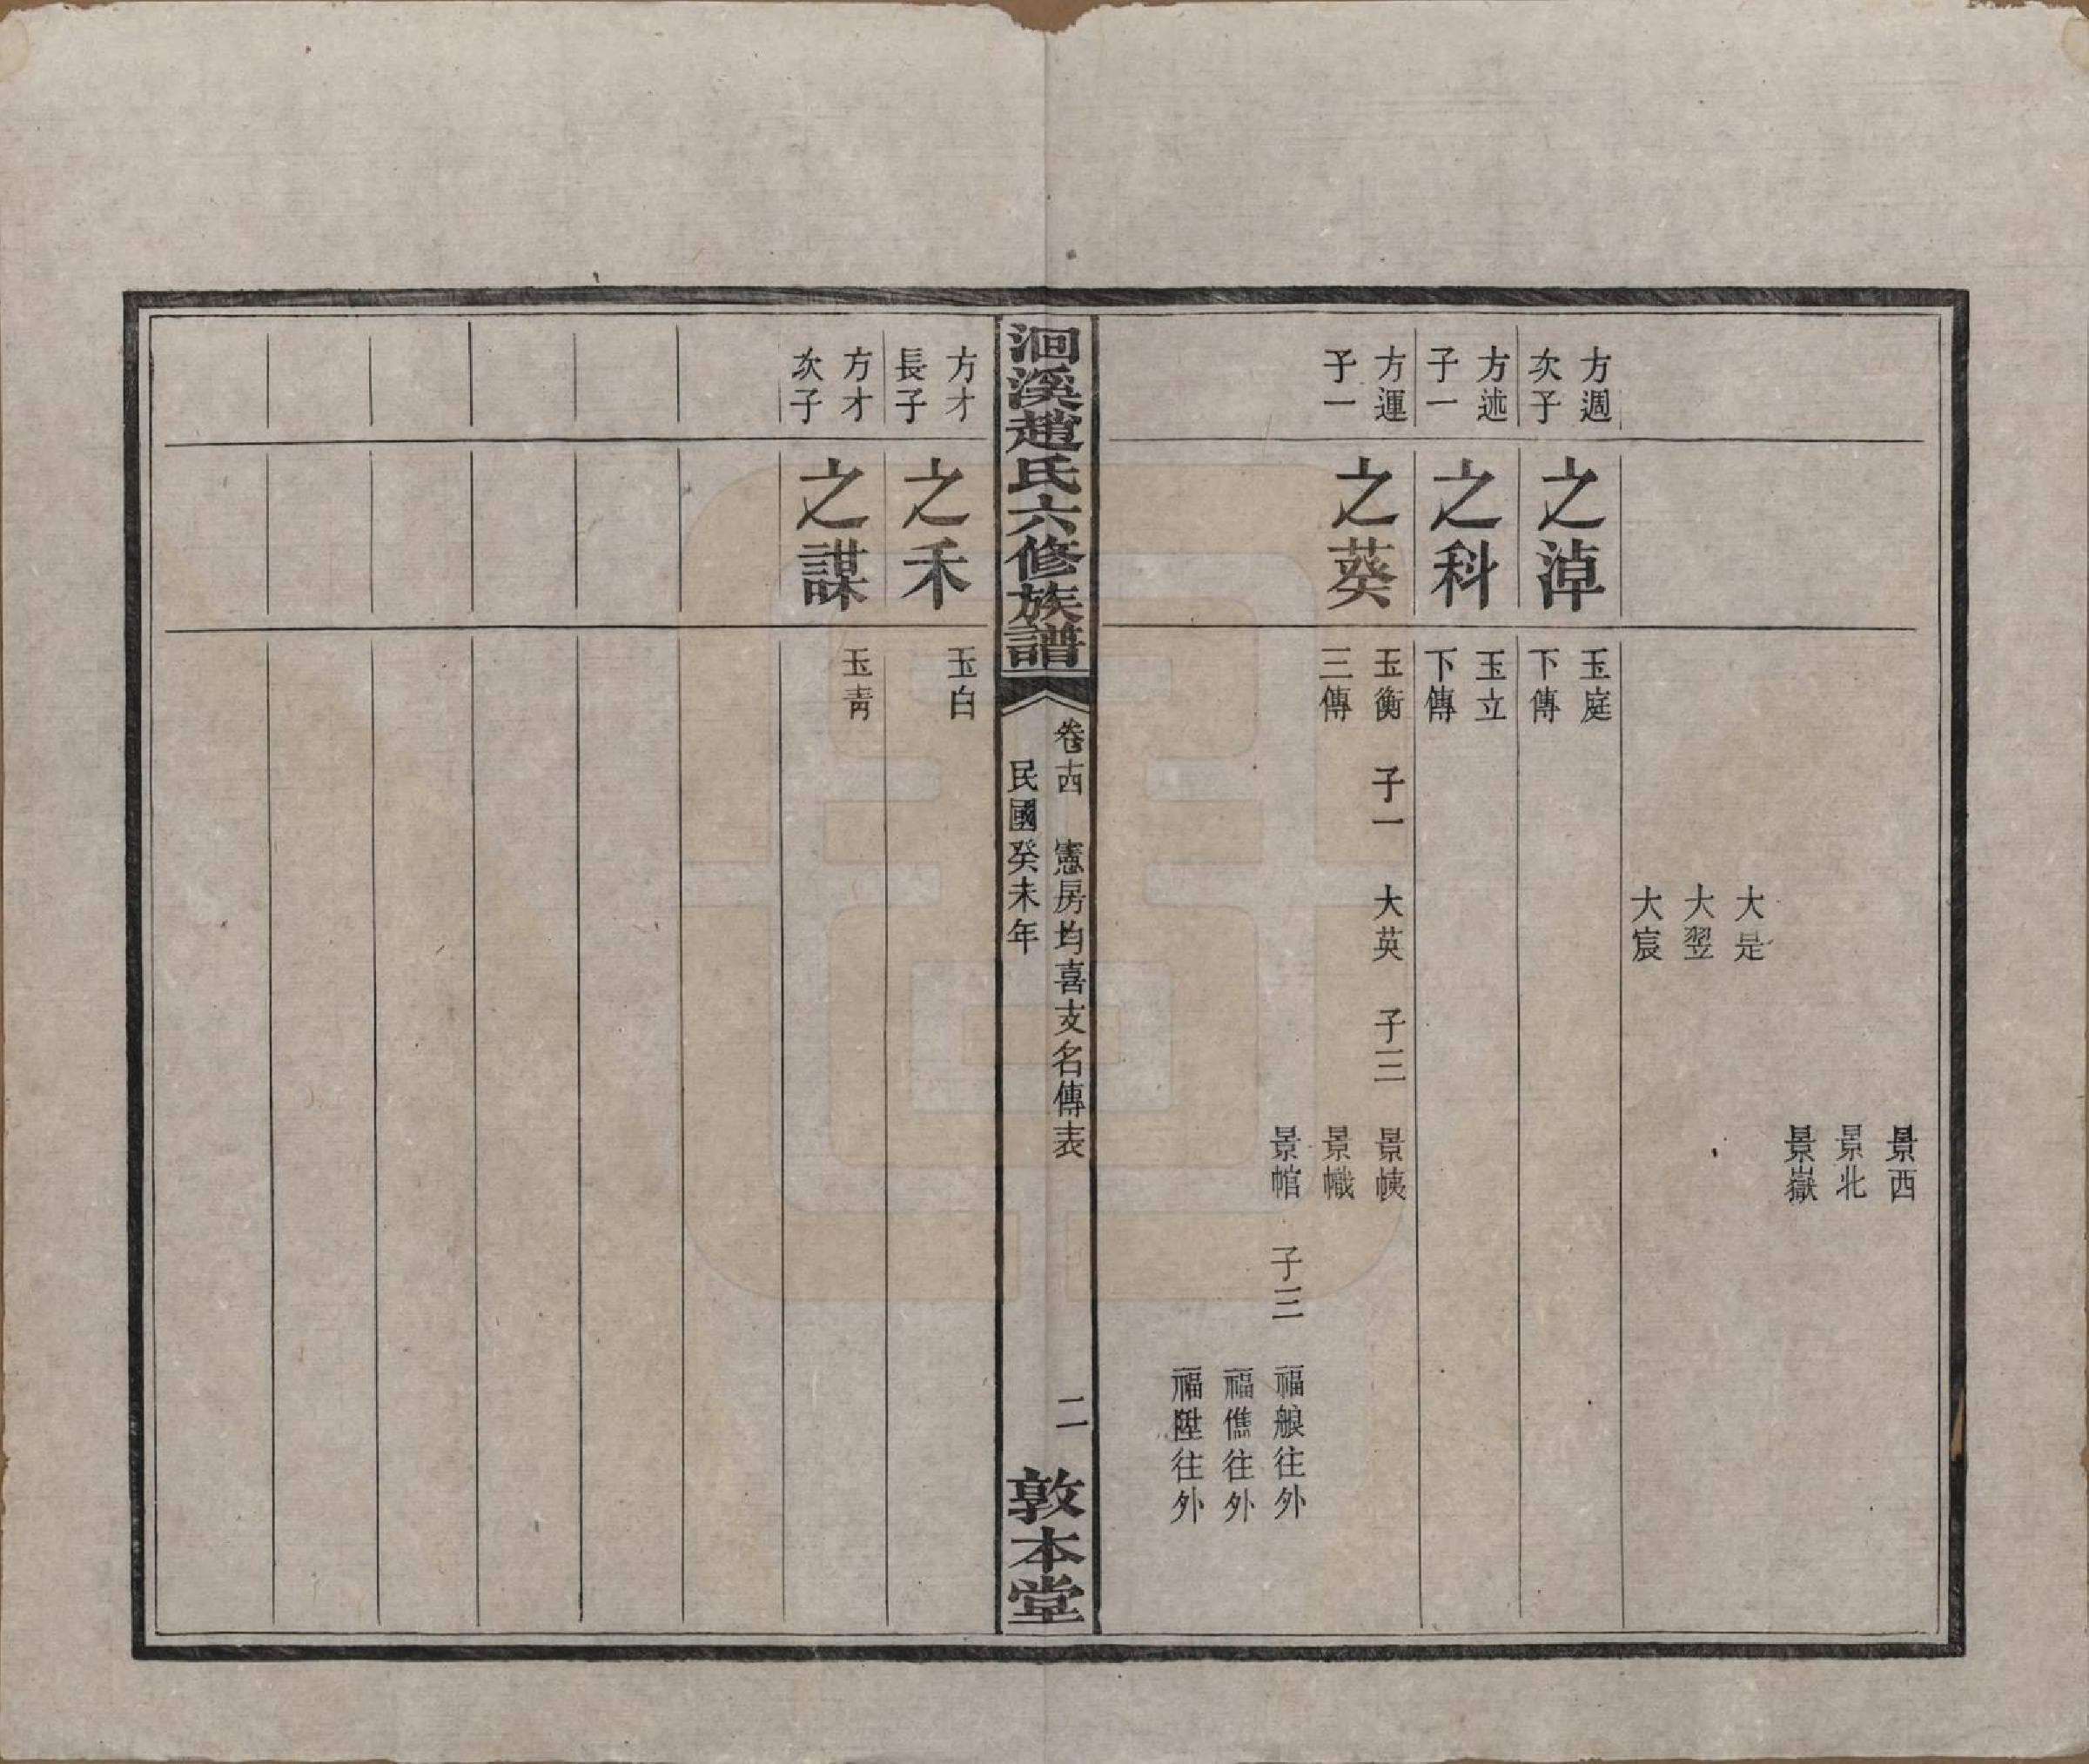 景西
景北
景嶽
大是
大翌
大宸
方週
次子
之淖
玉庭
下傳
方述
子一
之科
玉立
下傳
方運
子一
之葵
玉衡 子一 大英 子三 景帺
三傳
景幟
景㡓 子三 福艆往外
福僬往外
福陞往外
洄溪趙氏六修族譜
卷十四 憲房均喜支名傳表 二
民國癸未年
敦本堂
方才
長子
之禾
玉白
方才
次子
之謀
玉青